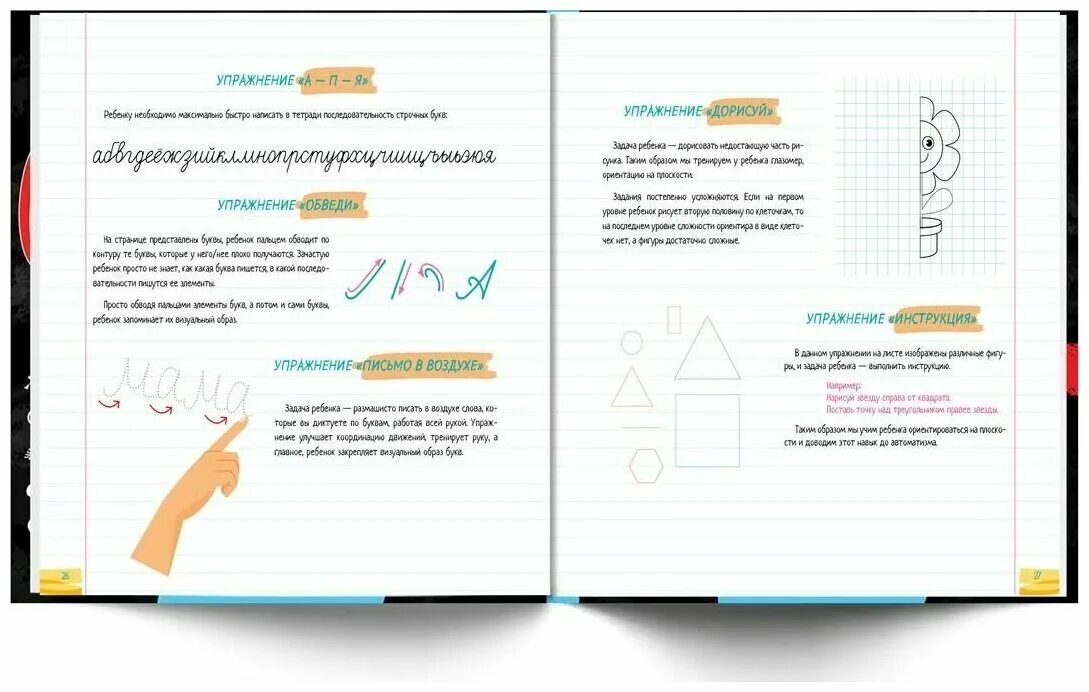 УПРАЖНЕНИЕ «А – П – Я»
Ребенку необходимо максимально быстро написать в тетради последовательность строчных букв:
абвгдеёжзийклмнопрстуфхцчшщъыьэюя
УПРАЖНЕНИЕ «ОБВЕДИ»
На странице представлены буквы, ребенок пальцем обводит по
контуру те буквы, которые у него/нее плохо получаются. Зачастую
ребенок просто не знает, как какая буква пишется, в какой последо-
вательности пишутся ее элементы.
Просто обводя пальцами элементы букв, а потом и сами буквы,
ребенок запоминает их визуальный образ.
А
УПРАЖНЕНИЕ «ПИСЬМО В ВОЗДУХЕ»
мама
Задача ребенка — размашисто писать в воздухе слова, ко-
торые вы диктуете по буквам, работая всей рукой. Упраж-
нение улучшает координацию движений, тренирует руку, а
главное, ребенок закрепляет визуальный образ букв.
26
УПРАЖНЕНИЕ «ДОРИСУЙ»
Задача ребенка — дорисовать недостающую часть ри-
сунка. Таким образом мы тренируем у ребенка глазомер,
ориентацию на плоскости.
Задания постепенно усложняются. Если на первом
уровне ребенок рисует вторую половину по клеточкам, то
на последнем уровне сложности ориентира в виде клето-
чек нет, а фигуры достаточно сложные.
УПРАЖНЕНИЕ «ИНСТРУКЦИЯ»
В данном упражнении на листе изображены различные фигу-
ры, и задача ребенка — выполнить инструкцию.
Например:
Нарисуй звезду справа от квадрата.
Поставь точку над треугольником правее звезды.
Таким образом мы учим ребенка ориентироваться на плоско-
сти и доводим этот навык до автоматизма.
27